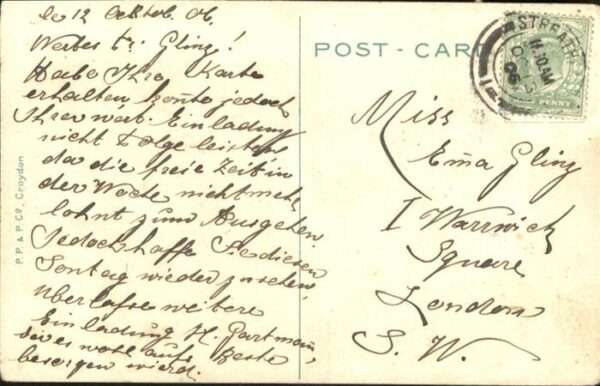 le 12 Oktob. 06.
Wertes Frl. Gling!
Habe Ihre Karte
erhalten konnte jedoch
Ihrer wert. Einladung
nicht Folge leisten
da die freie Zeit in
der Woche nicht mehr
lohnt zum Ausgehen.
Jedoch hoffe Sie diesen
Sontag wieder zu sehen,
überlasse weitere
Einladung H. Partmann,
der es wohl aufs Beste
besorgen wird.
POST-CARD
STREATH
11.30AM
OC
06
PENNY
Miss
Em̄a Gling
1 Warwick
Square
London
S. W.
P. P. & P. Cº, Croydon